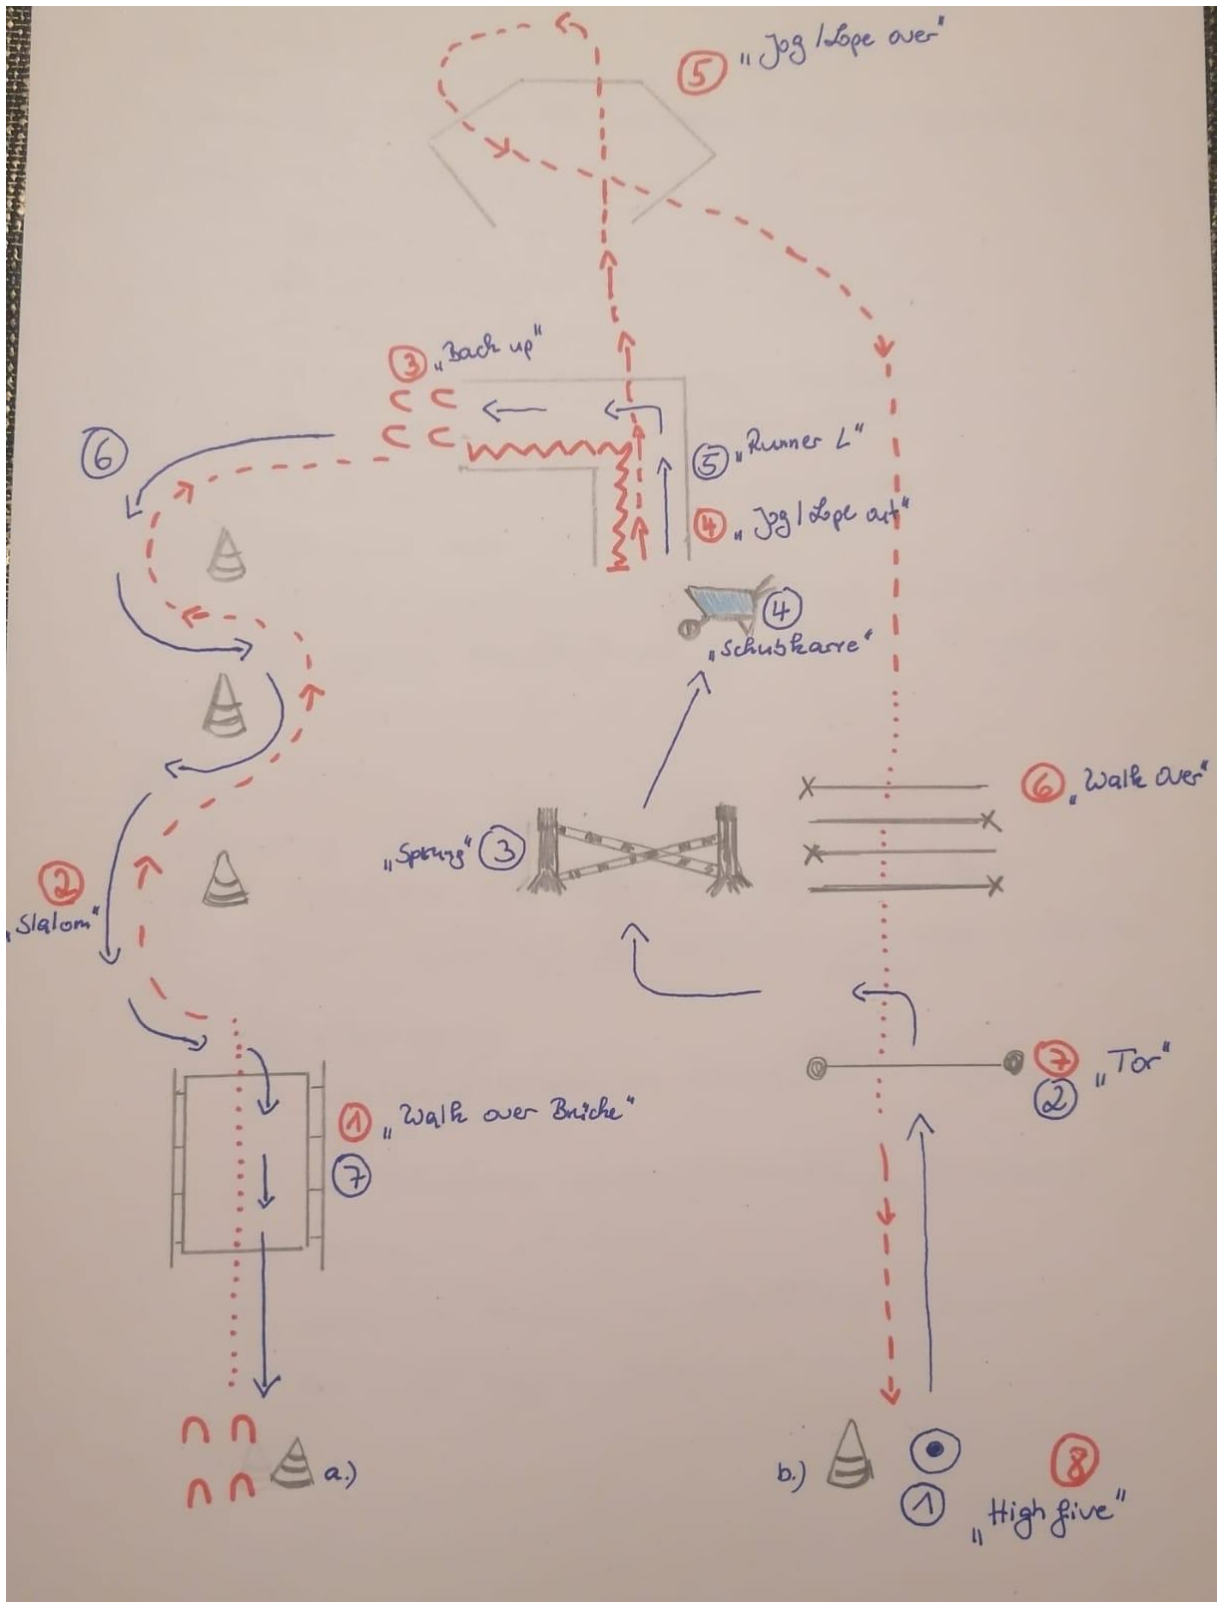 ⑤ "Jog/Lope over"
③ „Back up"
⑥
⑤ „Runner L"
④ „Jog/Lope out"
④
„Schubkarre"
⑥ „Walk over"
„Sprung" ③
②
„Slalom"
⑦ „Tor"
②
① „Walk over Brücke"
⑦
a.)
b.)
⑧
① „High five"